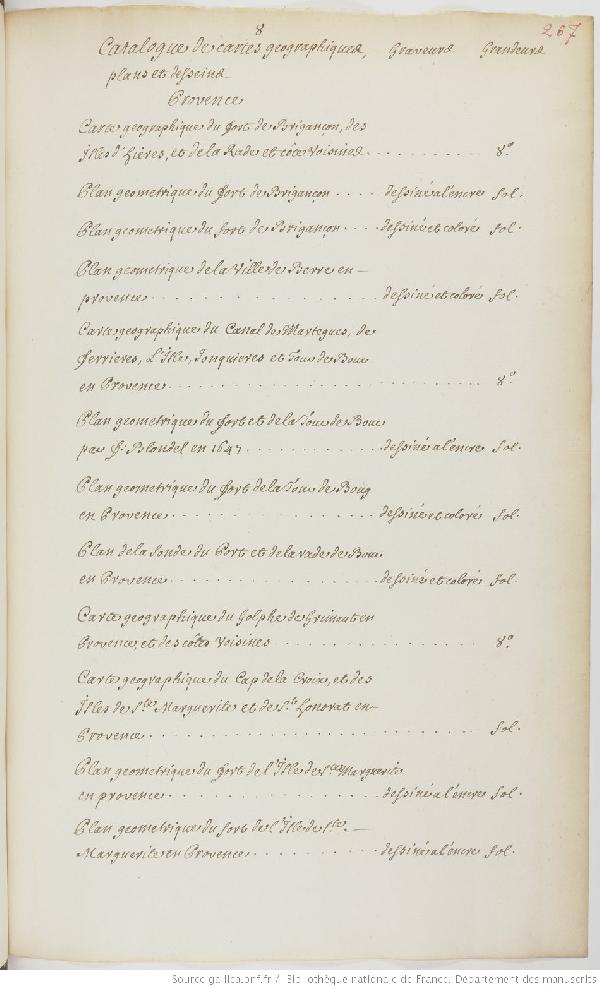 8
267
Catalogue de cartes geographiques, Graveurs Grandeurs
plans et desseins
Provence
Carte geographique du fort de Brigançon, des
Isles d'hieres, et de la Rade et côte Voisines . . . . . . . . . . 8°
Plan geometrique du fort de Brigançon . . . . dessiné a l'encre fol.
Plan geometrique du fort de Brigançon . . . . dessiné et coloré fol.
Plan geometrique de la Ville de Berre en —
provence . . . . . . . . . . . . . . . . dessiné et coloré fol.
Carte geographique du Canal de Martegues, de
ferrieres, L'Isle, Jonquieres et Tour de Bouc
en Provence . . . . . . . . . . . . . . . . . . . . 8°
Plan geometrique du fort et de la Tour de Bouc
par f. Blondel en 1647 . . . . . . . . . dessiné a l'encre fol.
Plan geometrique du fort de la Tour de Boug
en Provence . . . . . . . . . . . . . . dessiné et coloré fol.
Plan de la sonde du Port et de la rade de Bouc
en Provence . . . . . . . . . . . . . . dessiné et coloré fol.
Carte geographique du Golphe de Grimaut en
Provence, et des côtes Voisines . . . . . . . . . . . . . 8°
Carte geographique du Cap de la Croix, et des
Isles de Ste Marguerite et de St. honorat en
Provence . . . . . . . . . . . . . . . . . . . . . . fol.
Plan geometrique du fort de l'Isle de Ste Marguerite
en provence . . . . . . . . . . . . . . dessiné a l'encre fol.
Plan geometrique du fort de l'Isle de Ste. —
Marguerite en Provence . . . . . . . . . dessiné a l'encre fol.
Source gallica.bnf.fr / Bibliothèque nationale de France. Département des manuscrits